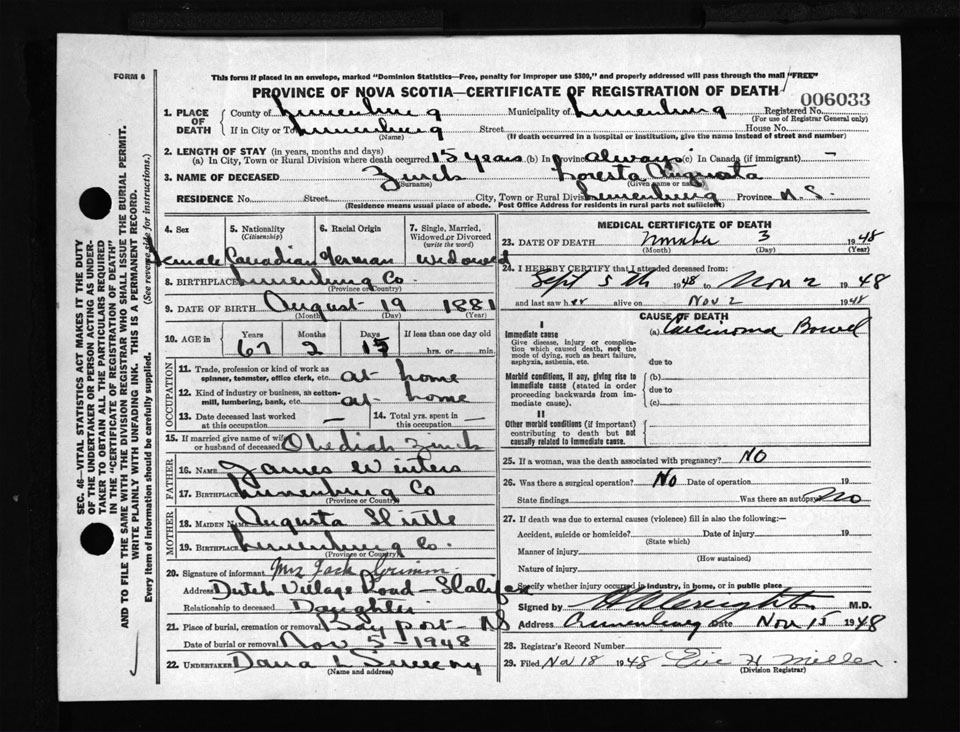 FORM 6
This form if placed in an envelope, marked "Dominion Statistics—Free, penalty for improper use $300," and properly addressed will pass through the mail "FREE"
PROVINCE OF NOVA SCOTIA—CERTIFICATE OF REGISTRATION OF DEATH
006033
1. PLACE OF DEATH County of Lunenburg Municipality of Lunenburg Registered No.
(For use of Registrar General only)
If in City or Town Lunenburg Street House No.
(Name) (If death occurred in a hospital or institution, give the name instead of street and number)
2. LENGTH OF STAY (in years, months and days)
(a) In City, Town or Rural Division where death occurred 15 years (b) In Province always (c) In Canada (if immigrant) —
3. NAME OF DECEASED Zinck Loresta Augusta
(Surname) (Given name or names)
RESIDENCE No. Street City, Town or Rural Division Lunenburg Province N.S.
(Residence means usual place of abode. Post Office Address for residents in rural parts not sufficient)
4. Sex Female
5. Nationality (Citizenship) Canadian
6. Racial Origin German
7. Single, Married, Widowed or Divorced (write the word) Widowed
8. BIRTHPLACE Lunenburg Co.
(Province or Country)
9. DATE OF BIRTH August 19 1881
(Month) (Day) (Year)
10. AGE in Years Months Days If less than one day old
67 2 15 hrs. or min.
OCCUPATION
11. Trade, profession or kind of work as spinner, teamster, office clerk, etc. at home
12. Kind of industry or business, as cotton-mill, lumbering, bank, etc. at home
13. Date deceased last worked at this occupation —
14. Total yrs. spent in this occupation —
15. If married give name of wife or husband of deceased Obediah Zinck
FATHER
16. NAME James Winters
17. BIRTHPLACE Lunenburg Co
(Province or Country)
MOTHER
18. MAIDEN NAME Augusta
19. BIRTHPLACE Lunenburg Co.
(Province or Country)
20. Signature of informant Mrs Jack Grimm
Address Dutch Village Road — Halifax
Relationship to deceased Daughter
21. Place of burial, cremation or removal Bayport — NS
Date of burial or removal Nov 5 - 1948
22. UNDERTAKER Dana L Sweeny
(Name and address)
MEDICAL CERTIFICATE OF DEATH
23. DATE OF DEATH November 3 1948
(Month) (Day) (Year)
24. I HEREBY CERTIFY that I attended deceased from:
Sept 5th 1948 to Nov 2 1948
and last saw her alive on Nov 2 1948
CAUSE OF DEATH
I
Immediate cause (a) Carcinoma Bowel
Give disease, injury or complication which caused death, not the mode of dying, such as heart failure, asphyxia, asthenia, etc. due to
Morbid conditions, if any, giving rise to immediate cause (stated in order proceeding backwards from immediate cause). (b)
due to
(c)
II
Other morbid conditions (if important) contributing to death but not causally related to immediate cause.
25. If a woman, was the death associated with pregnancy? No
26. Was there a surgical operation? No Date of operation 19
State findings Was there an autopsy No
27. If death was due to external causes (violence) fill in also the following:—
Accident, suicide or homicide? Date of injury 19
(State which)
Manner of injury
(How sustained)
Nature of injury
Specify whether injury occurred in industry, in home, or in public place
Signed by Creighton M.D.
Address Lunenburg Date Nov 15 1948
28. Registrar's Record Number
29. Filed Nov 18 1948 Eric H Miller
(Division Registrar)
SEC. 46—VITAL STATISTICS ACT MAKES IT THE DUTY
OF THE UNDERTAKER OR PERSON ACTING AS UNDER-
TAKER TO OBTAIN ALL THE PARTICULARS REQUIRED
IN THE "CERTIFICATE OF REGISTRATION OF DEATH"
AND TO FILE THE SAME WITH THE DIVISION REGISTRAR WHO SHALL ISSUE THE BURIAL PERMIT.
WRITE PLAINLY WITH UNFADING INK. THIS IS A PERMANENT RECORD.
Every item of information should be carefully supplied. (See reverse side for instructions).